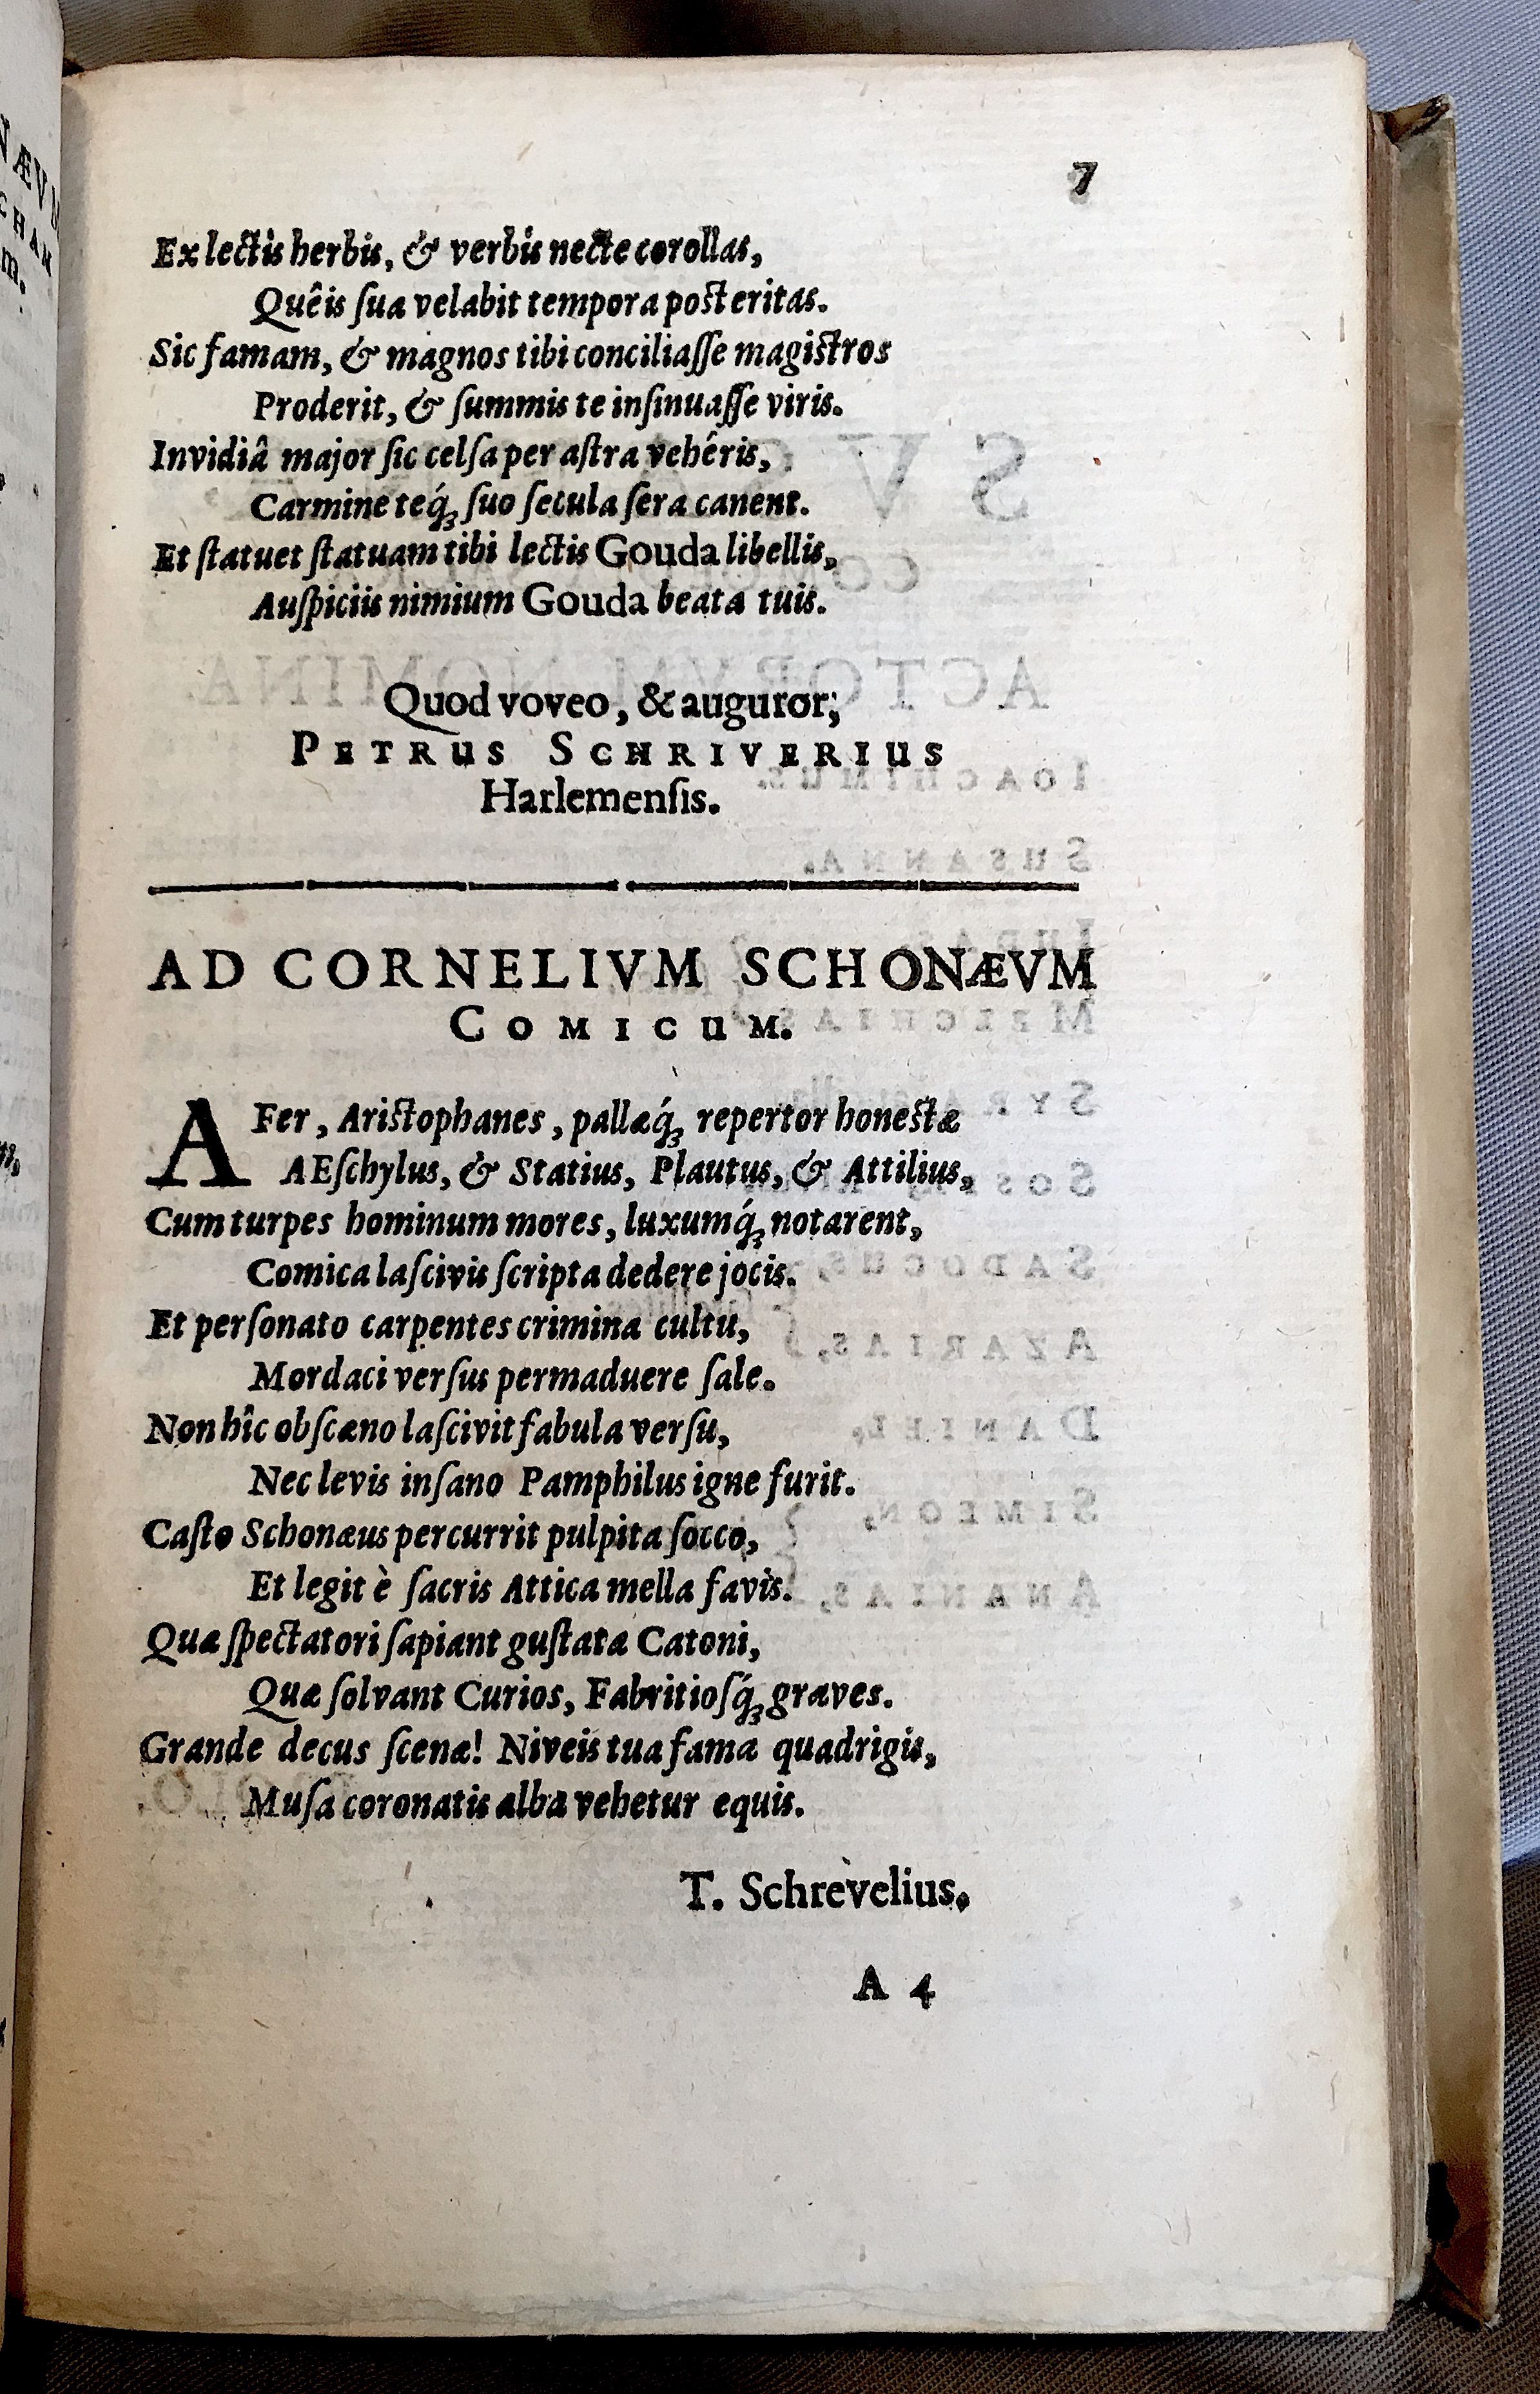 7
Ex lectis herbis, & verbis necte corollas,
Quêis ſua velabit tempora poſteritas.
Sic famam, & magnos tibi conciliaſſe magiſtros
Proderit, & ſummis te inſinuaſſe viris.
Invidiâ major ſic celſa per aſtra vehéris,
Carmine teq́ꝫ ſuo ſecula ſera canent.
Et ſtatuet ſtatuam tibi lectis Gouda libellis,
Auſpiciis nimium Gouda beata tuis.
Quod voveo, & auguror;
PETRUS SCHRIVERIUS
Harlemenſis.
AD CORNELIVM SCHONÆVM
COMICUM.
AFer, Ariſtophanes, pallæq́ꝫ repertor honeſtæ
AEſchylus, & Statius, Plautus, & Attilius,
Cum turpes hominum mores, luxumq́ꝫ notarent,
Comica laſcivis ſcripta dedere jocis.
Et perſonato carpentes crimina cultu,
Mordaci verſus permaduere ſale.
Non hîc obſcæno laſcivit fabula verſu,
Nec levis inſano Pamphilus igne furit.
Caſto Schonæus percurrit pulpita ſocco,
Et legit è ſacris Attica mella favis.
Quæ ſpectatori ſapiant guſtata Catoni,
Quæ ſolvant Curios, Fabritioſq́ꝫ graves.
Grande decus ſcenæ! Niveis tua fama quadrigis,
Muſa coronatis alba vehetur equis.
T. Schrevelius.
A 4